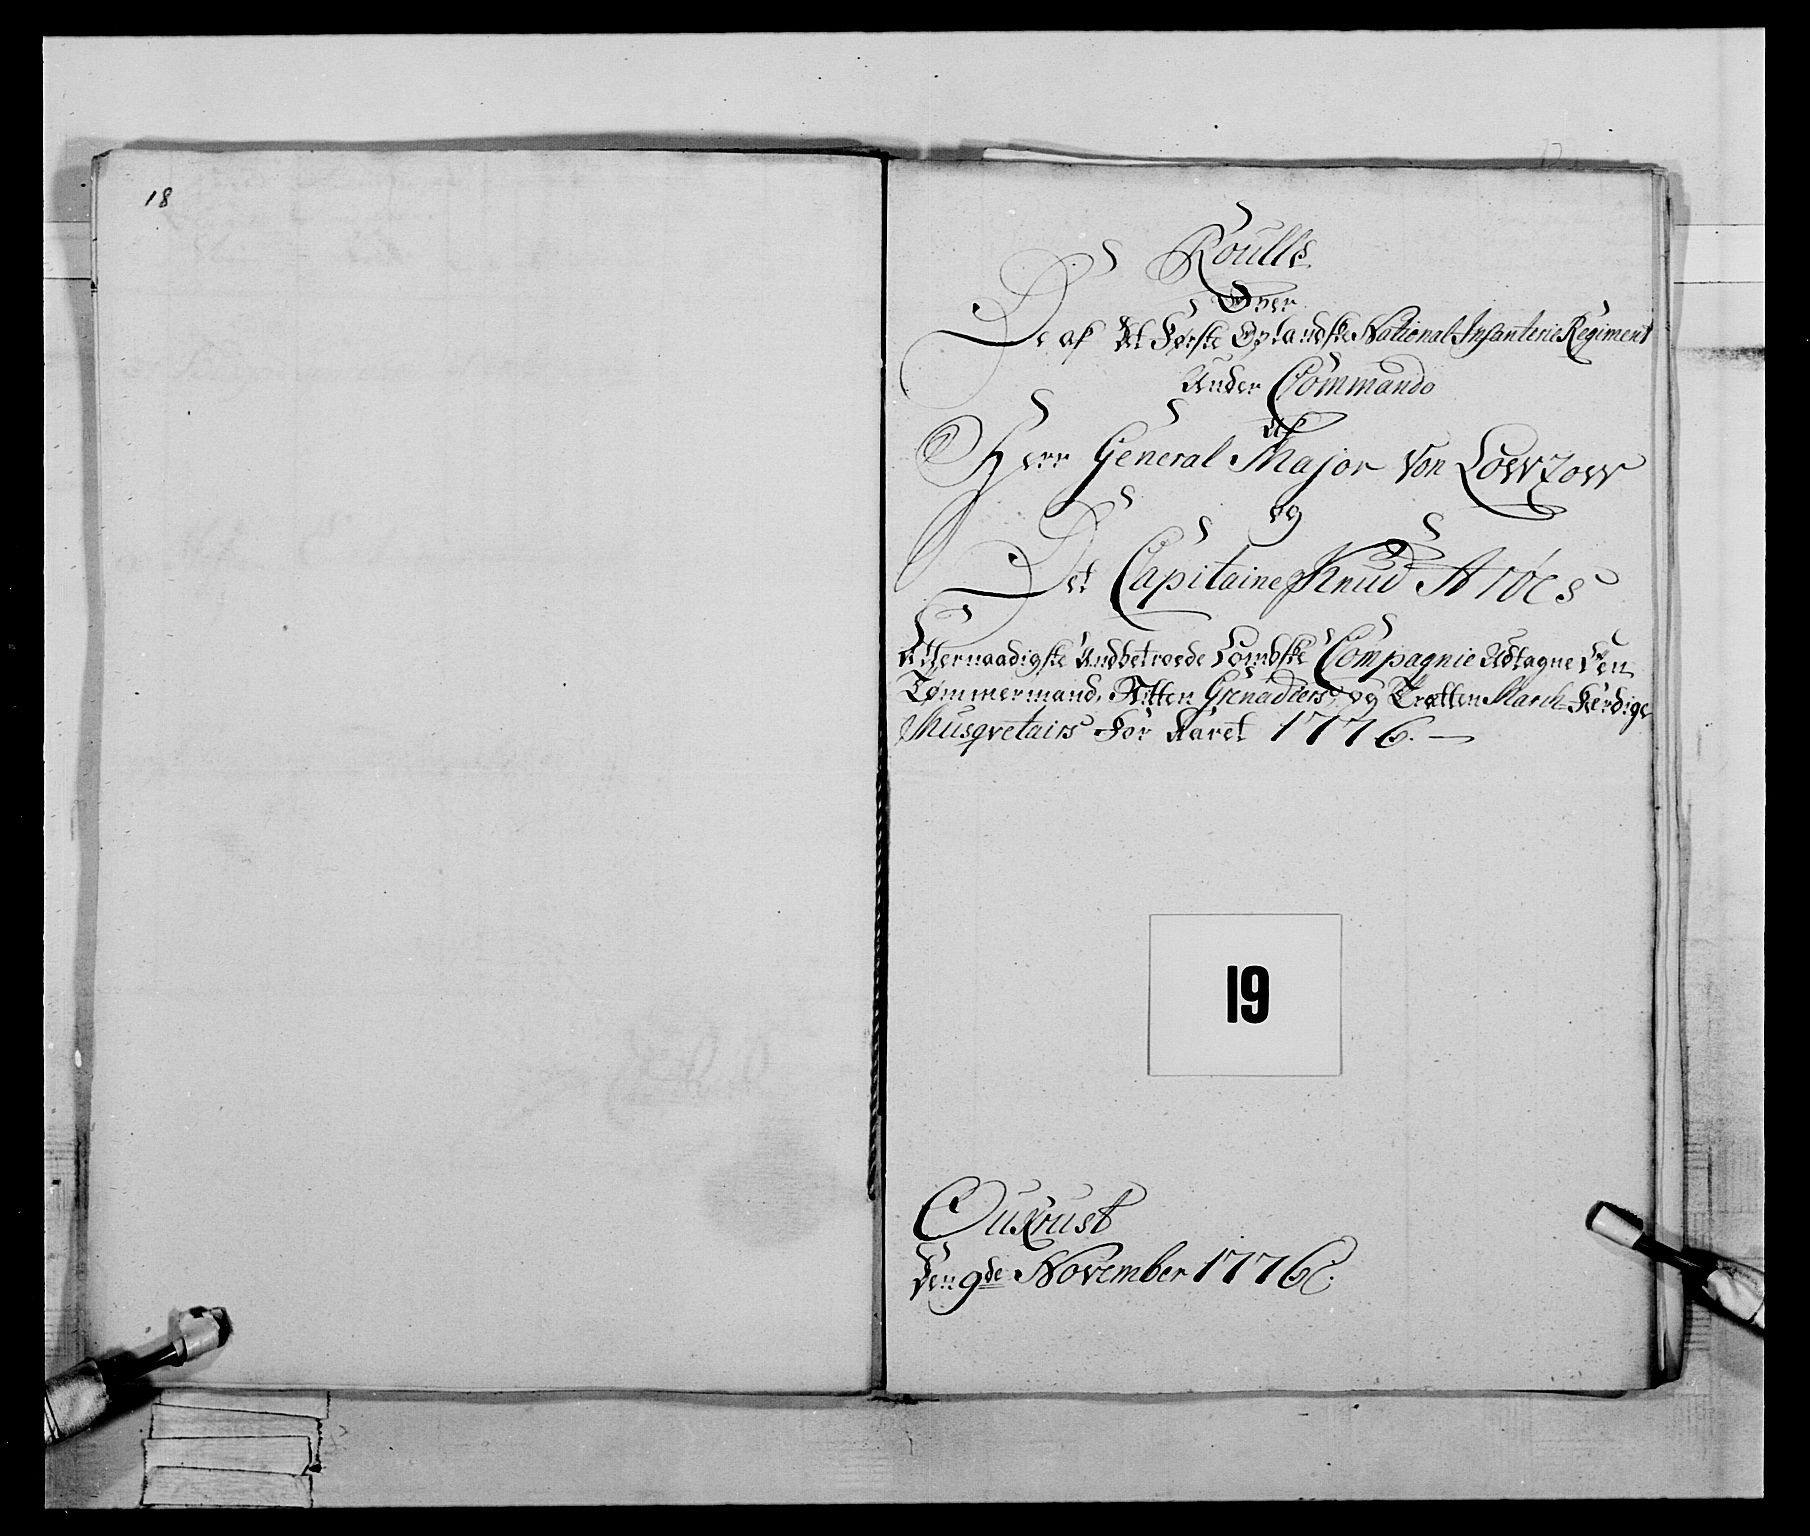 18
Roulle
Over
De af Det Første Oplandske National Infanterie Regiment
Under Commando
Af
Herr General Major Von Lowzow
og
Det Capitaine Knud Aroes
Allernaadigste Andbetroede Lomske Compagnie Udtagne Een
Tømmermand, Atten Grenadiers, og Tretten March-Færdige
Musqvetairs For Aaret 1776.
19
Qukrust
Den 9de November 1776.